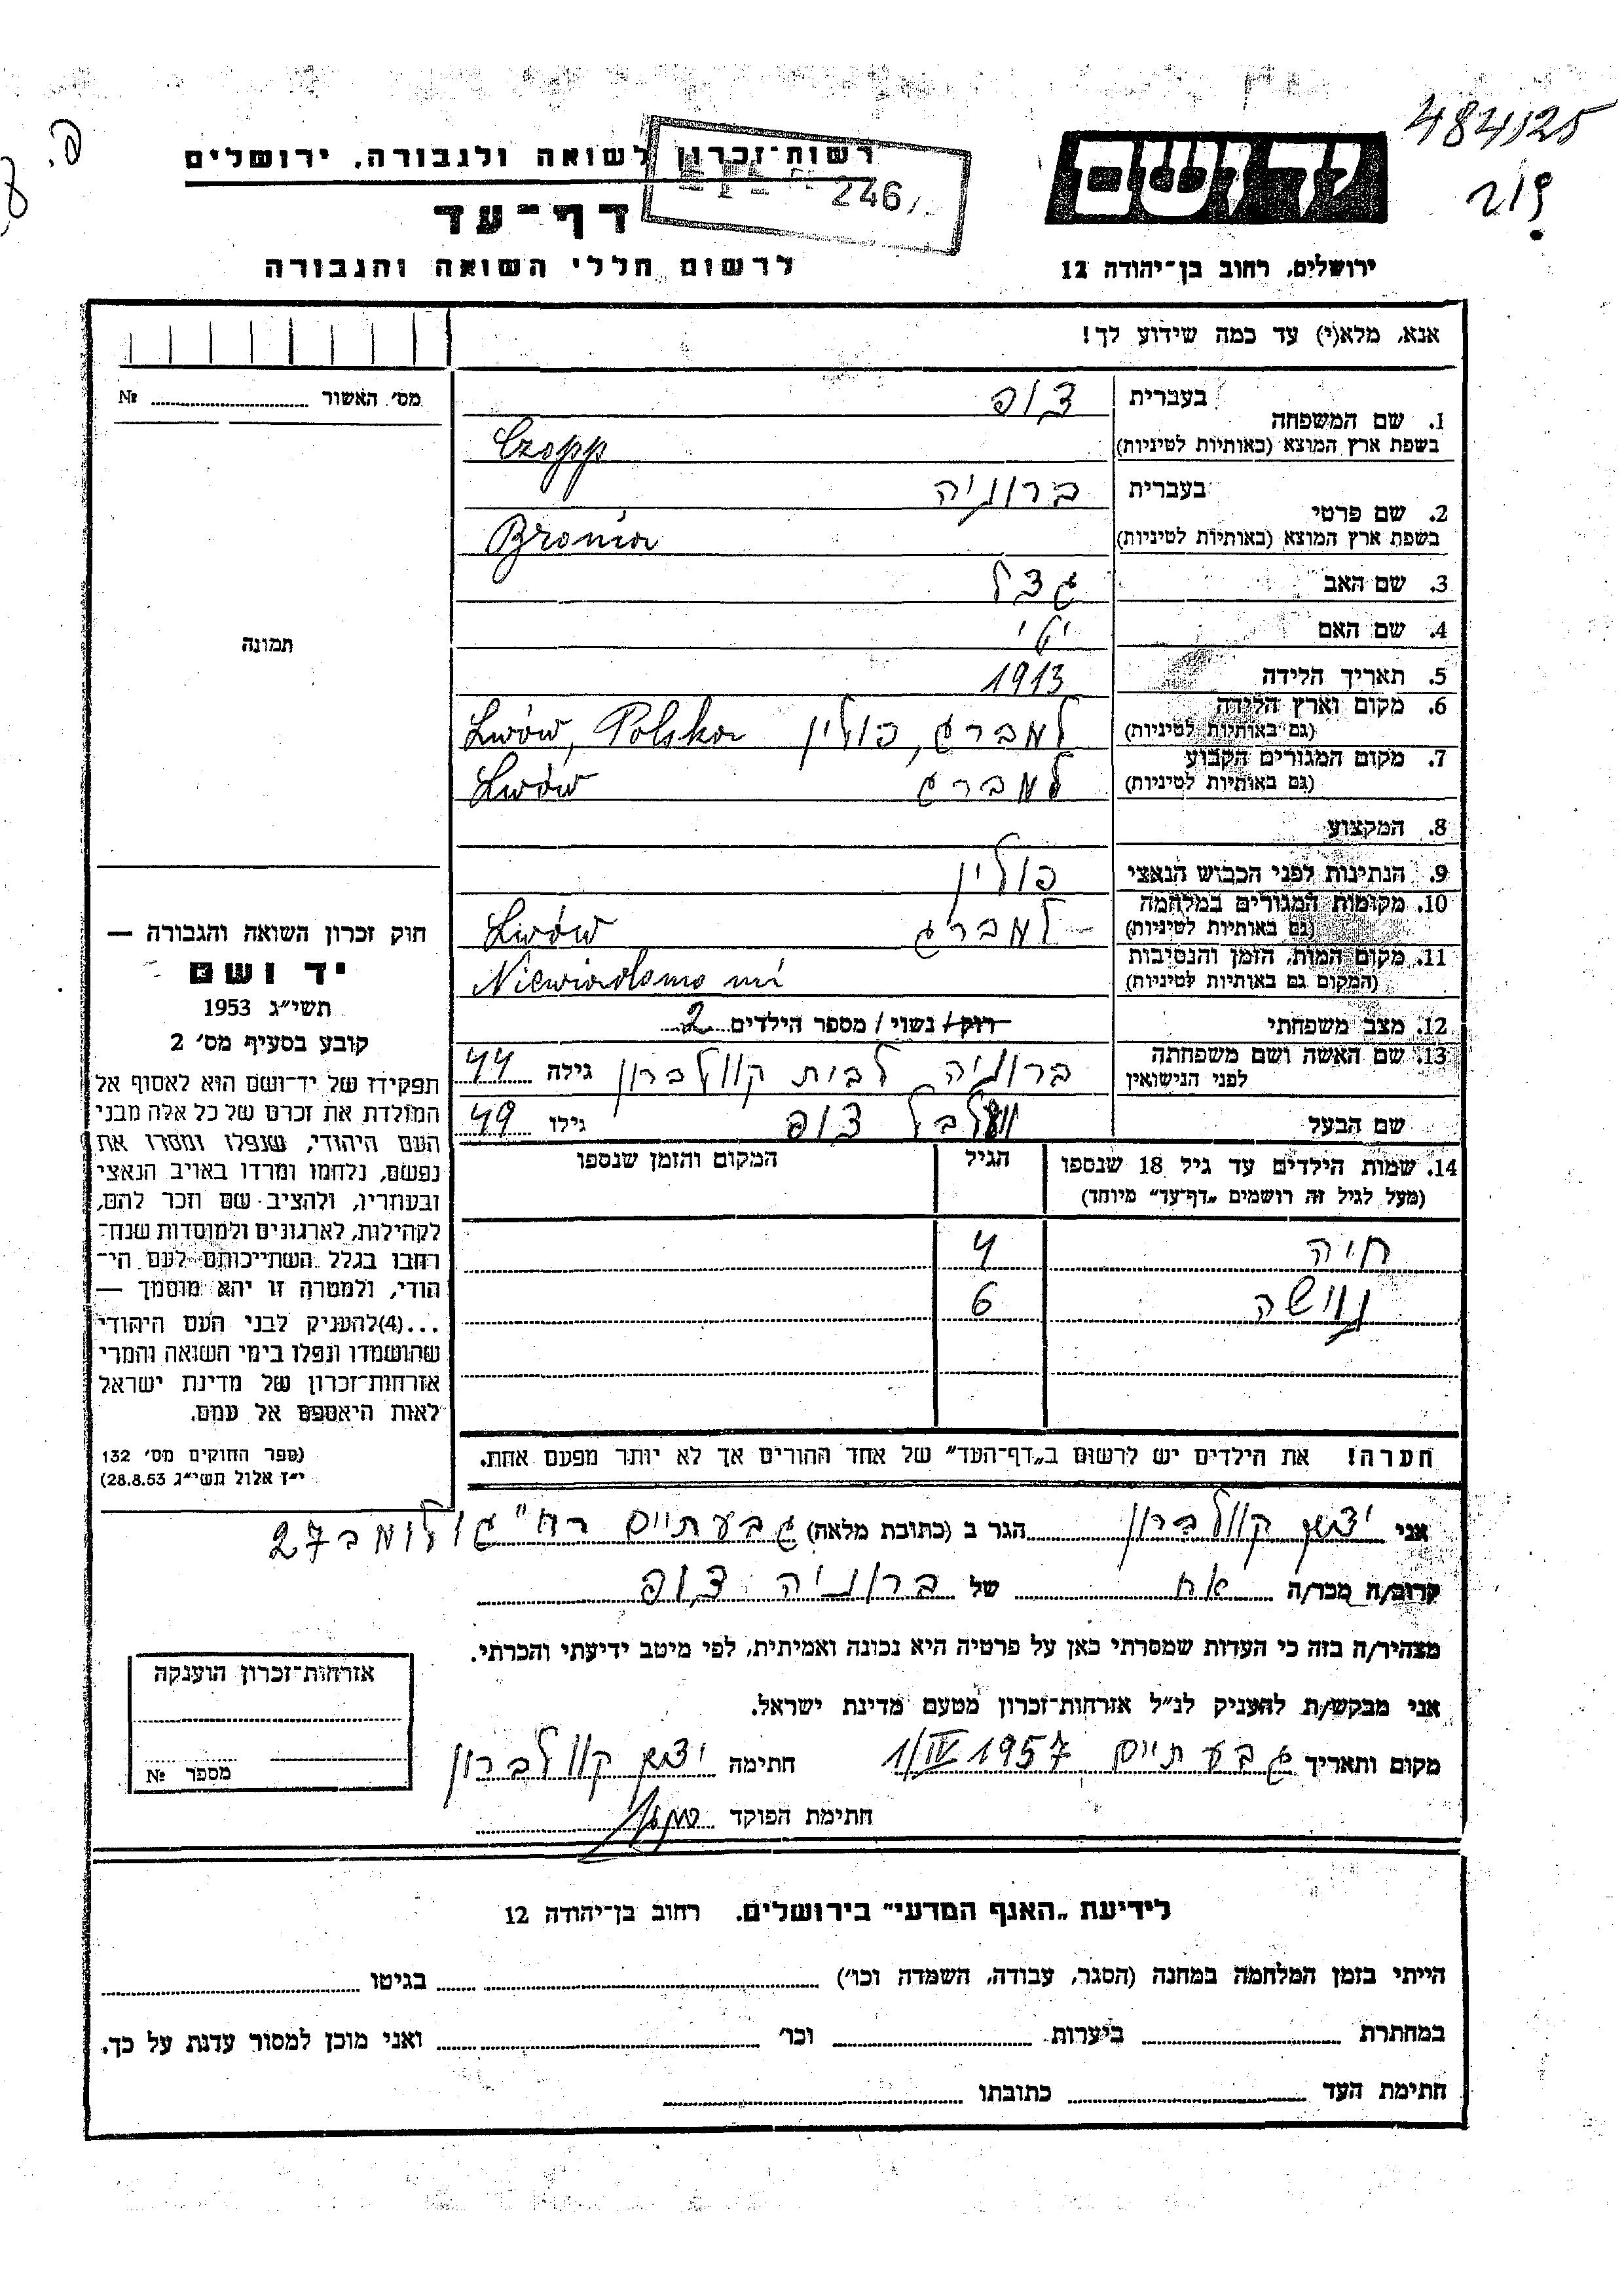 484125
219
יד ושם
ירושלים, רחוב בן־יהודה 12
רשות־זכרון לשואה ולגבורה, ירושלים
246
דף־עד
לרשום חללי השואה והגבורה
אנא, מלא(י) עד כמה שידוע לך!
מס׳ האשור № 
1. שם המשפחה
בעברית צופ
בשפת ארץ המוצא (באותיות לטיניות) Czopp
2. שם פרטי
בעברית ברוניה
בשפת ארץ המוצא (באותיות לטיניות) Bronia
3. שם האב גצל
4. שם האם יטי
5. תאריך הלידה 1913
6. מקום וארץ הלידה
(גם באותיות לטיניות) למברג, פולין Lwów, Polska
7. מקום המגורים הקבוע
(גם באותיות לטיניות) למברג Lwów
8. המקצוע
9. הנתינות לפני הכבוש הנאצי פולין
10. מקומות המגורים במלחמה
(גם באותיות לטיניות) למברג Lwów
11. מקום המות, הזמן והנסיבות
(המקום גם באותיות לטיניות) Niewiadomo mi
12. מצב משפחתי רוק/ נשוי/ מספר הילדים 2
13. שם האשה ושם משפחתה
לפני הנישואין ברוניה לבית קוולברון גילה 44
שם הבעל וועלבל צופ גילו 49
14. שמות הילדים עד גיל 18 שנספו הגיל המקום והזמן שנספו
(מעל לגיל זה רושמים „דף־עד״ מיוחד)
חיה 4
נוושה 6
הערה! את הילדים יש לרשום ב„דף־העד״ של אחד ההורים אך לא יותר מפעם אחת.
תמונה
חוק זכרון השואה והגבורה —
יד ושם
תשי״ג 1953
קובע בסעיף מס׳ 2
תפקידו של יד־ושם הוא לאסוף אל
המולדת את זכרם של כל אלה מבני
העם היהודי, שנפלו ומסרו את
נפשם, נלחמו ומרדו באויב הנאצי
ובעוזריו, ולהציב שם וזכר להם,
לקהילות, לארגונים ולמוסדות שנח־
רבו בגלל השתייכותם לעם הי־
הודי, ולמטרה זו יהא מוסמך —
...(4)להעניק לבני העם היהודי
שהושמדו ונפלו בימי השואה והמרי
אזרחות־זכרון של מדינת ישראל
לאות היאספם אל עמם.
(ספר החוקים מס׳ 132
י״ז אלול תשי״ג 28.8.53)
אני יצחק קוולברון הגר ב (כתובת מלאה) גבעתיים רח״ גולומב 27
קרוב/ה מכר/ה אח של ברוניה צופ
מצהיר/ה בזה כי העדות שמסרתי כאן על פרטיה היא נכונה ואמיתית, לפי מיטב ידיעתי והכרתי.
אני מבקש/ת להעניק לנ״ל אזרחות־זכרון מטעם מדינת ישראל.
מקום ותאריך גבעתיים 1/IV 1957 חתימה יצחק קוולברון
חתימת הפוקד
אזרחות־זכרון הוענקה
מספר №
לידיעת „האגף המדעי״ בירושלים. רחוב בן־יהודה 12
הייתי בזמן המלחמה במחנה (הסגר, עבודה, השמדה וכו׳) בגיטו
במחתרת ביערות וכו׳ ואני מוכן למסור עדות על כך.
חתימת העד כתובתו